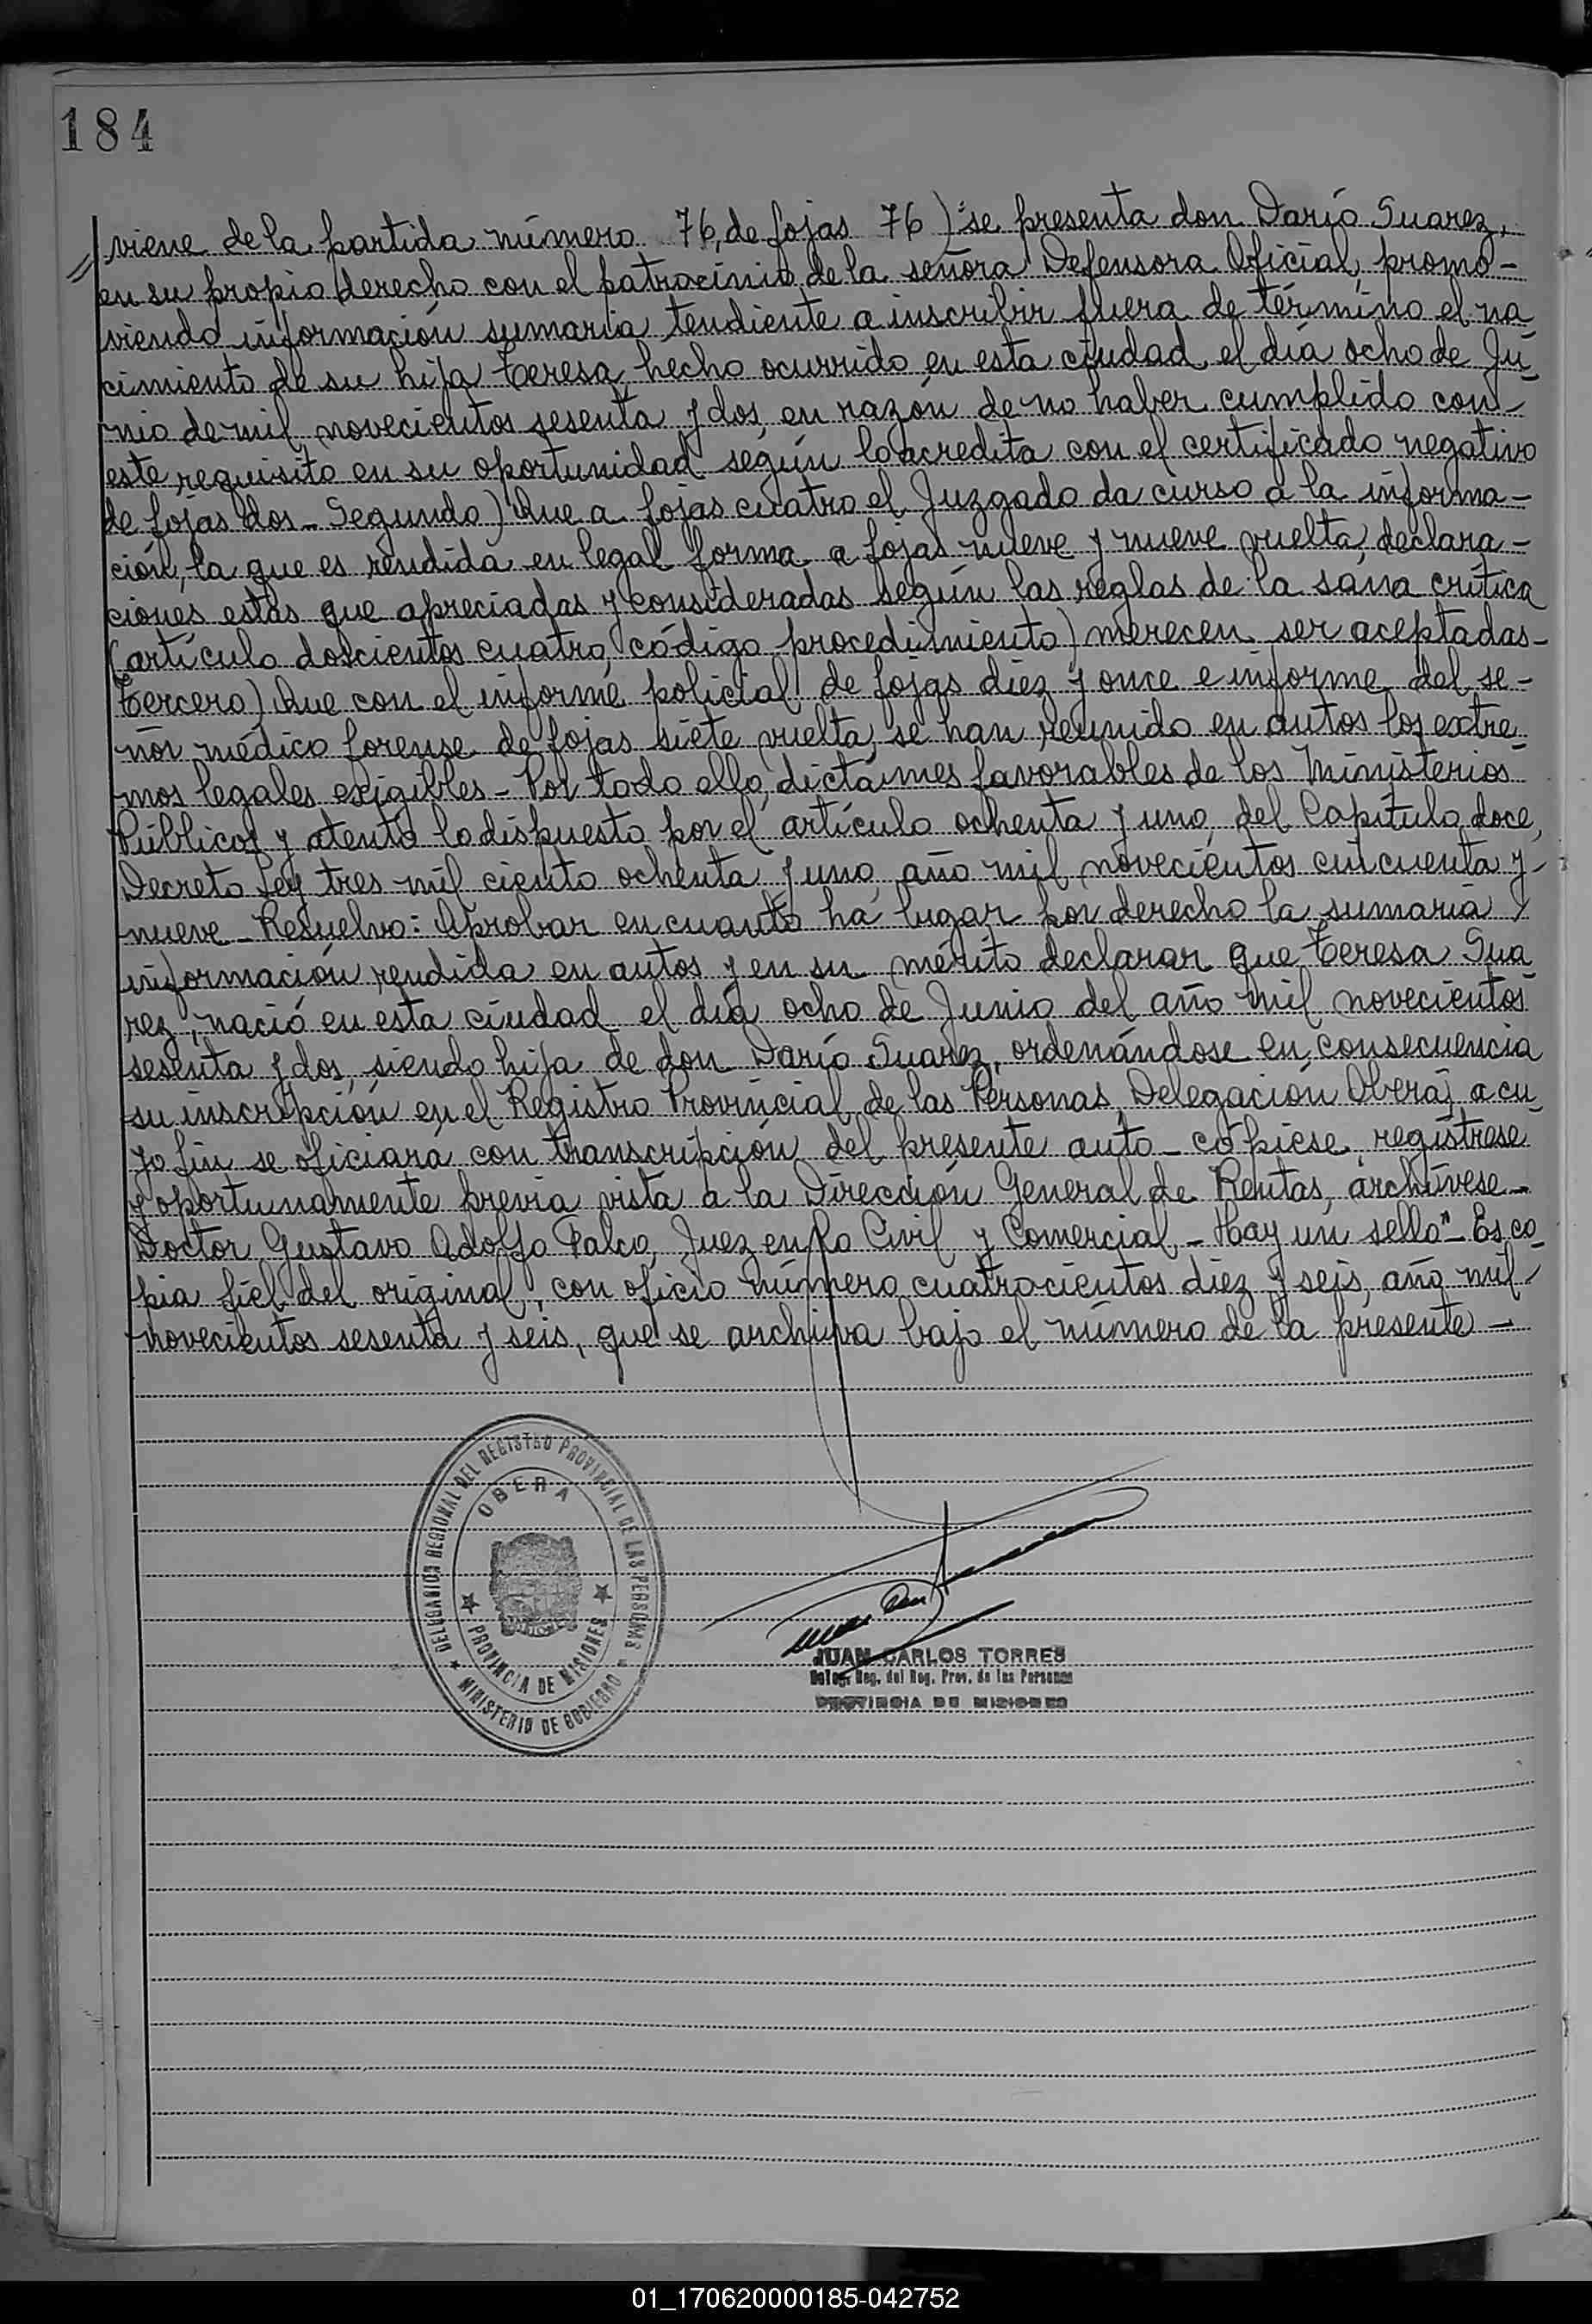 184
viene de la partida número 76, de fojas 76) "se presenta don Darío Suarez,
en su propio derecho con el patrocinio de la señora Defensora Oficial, promo-
viendo información sumaria, tendiente a inscribir fuera de término el na-
cimiento de su hija Teresa, hecho ocurrido en esta ciudad, el día ocho de Ju-
nio de mil novecientos sesenta y dos, en razón de no haber cumplido con-
este requisito en su oportunidad según lo acredita con el certificado negativo
de fojas dos_ Segundo) Que a fojas cuatro el Juzgado da curso a la informa-
ción, la que es rendida en legal forma a fojas nueve y nueve vuelta, declara-
ciones estas que apreciadas y consideradas según las reglas de la sana crítica
(artículo doscientos cuatro, código procedimiento) merecen ser aceptadas-
Tercero) Que con el informe policial de fojas diez y once e informe del se-
ñor médico forense de fojas siete vuelta, se han reunido en autos los extre-
mos legales exigibles- Por todo ello, dictámes favorables de los Ministerios
Públicos y atento lo dispuesto por el artículo ochenta y uno, del Capítulo doce,
Decreto Ley tres mil ciento ochenta y uno, año mil novecientos cincuenta y-
nueve_ Resuelvo: Aprobar en cuanto ha lugar por derecho la sumaria y
información rendida en autos y en su mérito declarar que Teresa Sua
rez, nació en esta ciudad el día ocho de Junio del año mil novecientos
sesenta y dos, siendo hija de don Darío Suarez, ordenándose en consecuencia
su inscripción en el Registro Provincial de las Personas, Delegación Oberá, a cu-
yo fin se oficiará con transcripción del presente auto_ cópiese, regístrese
y oportunamente previa vista a la Dirección General de Rentas, archívese_
Doctor Gustavo Adolfo Falco, Juez en lo Civil y Comercial_ Hay un sello"_ Es co-
pia fiel del original, con oficio número cuatrocientos diez y seis, año mil-
novecientos sesenta y seis, que se archiva bajo el número de la presente_
DELEGACION REGIONAL DEL REGISTRO PROVINCIAL DE LAS PERSONAS
OBERA
PROVINCIA DE MISIONES
MINISTERIO DE GOBIERNO
JUAN CARLOS TORRES
Deleg. Reg. del Reg. Prov. de las Personas
PROVINCIA DE MISIONES
01_170620000185-042752